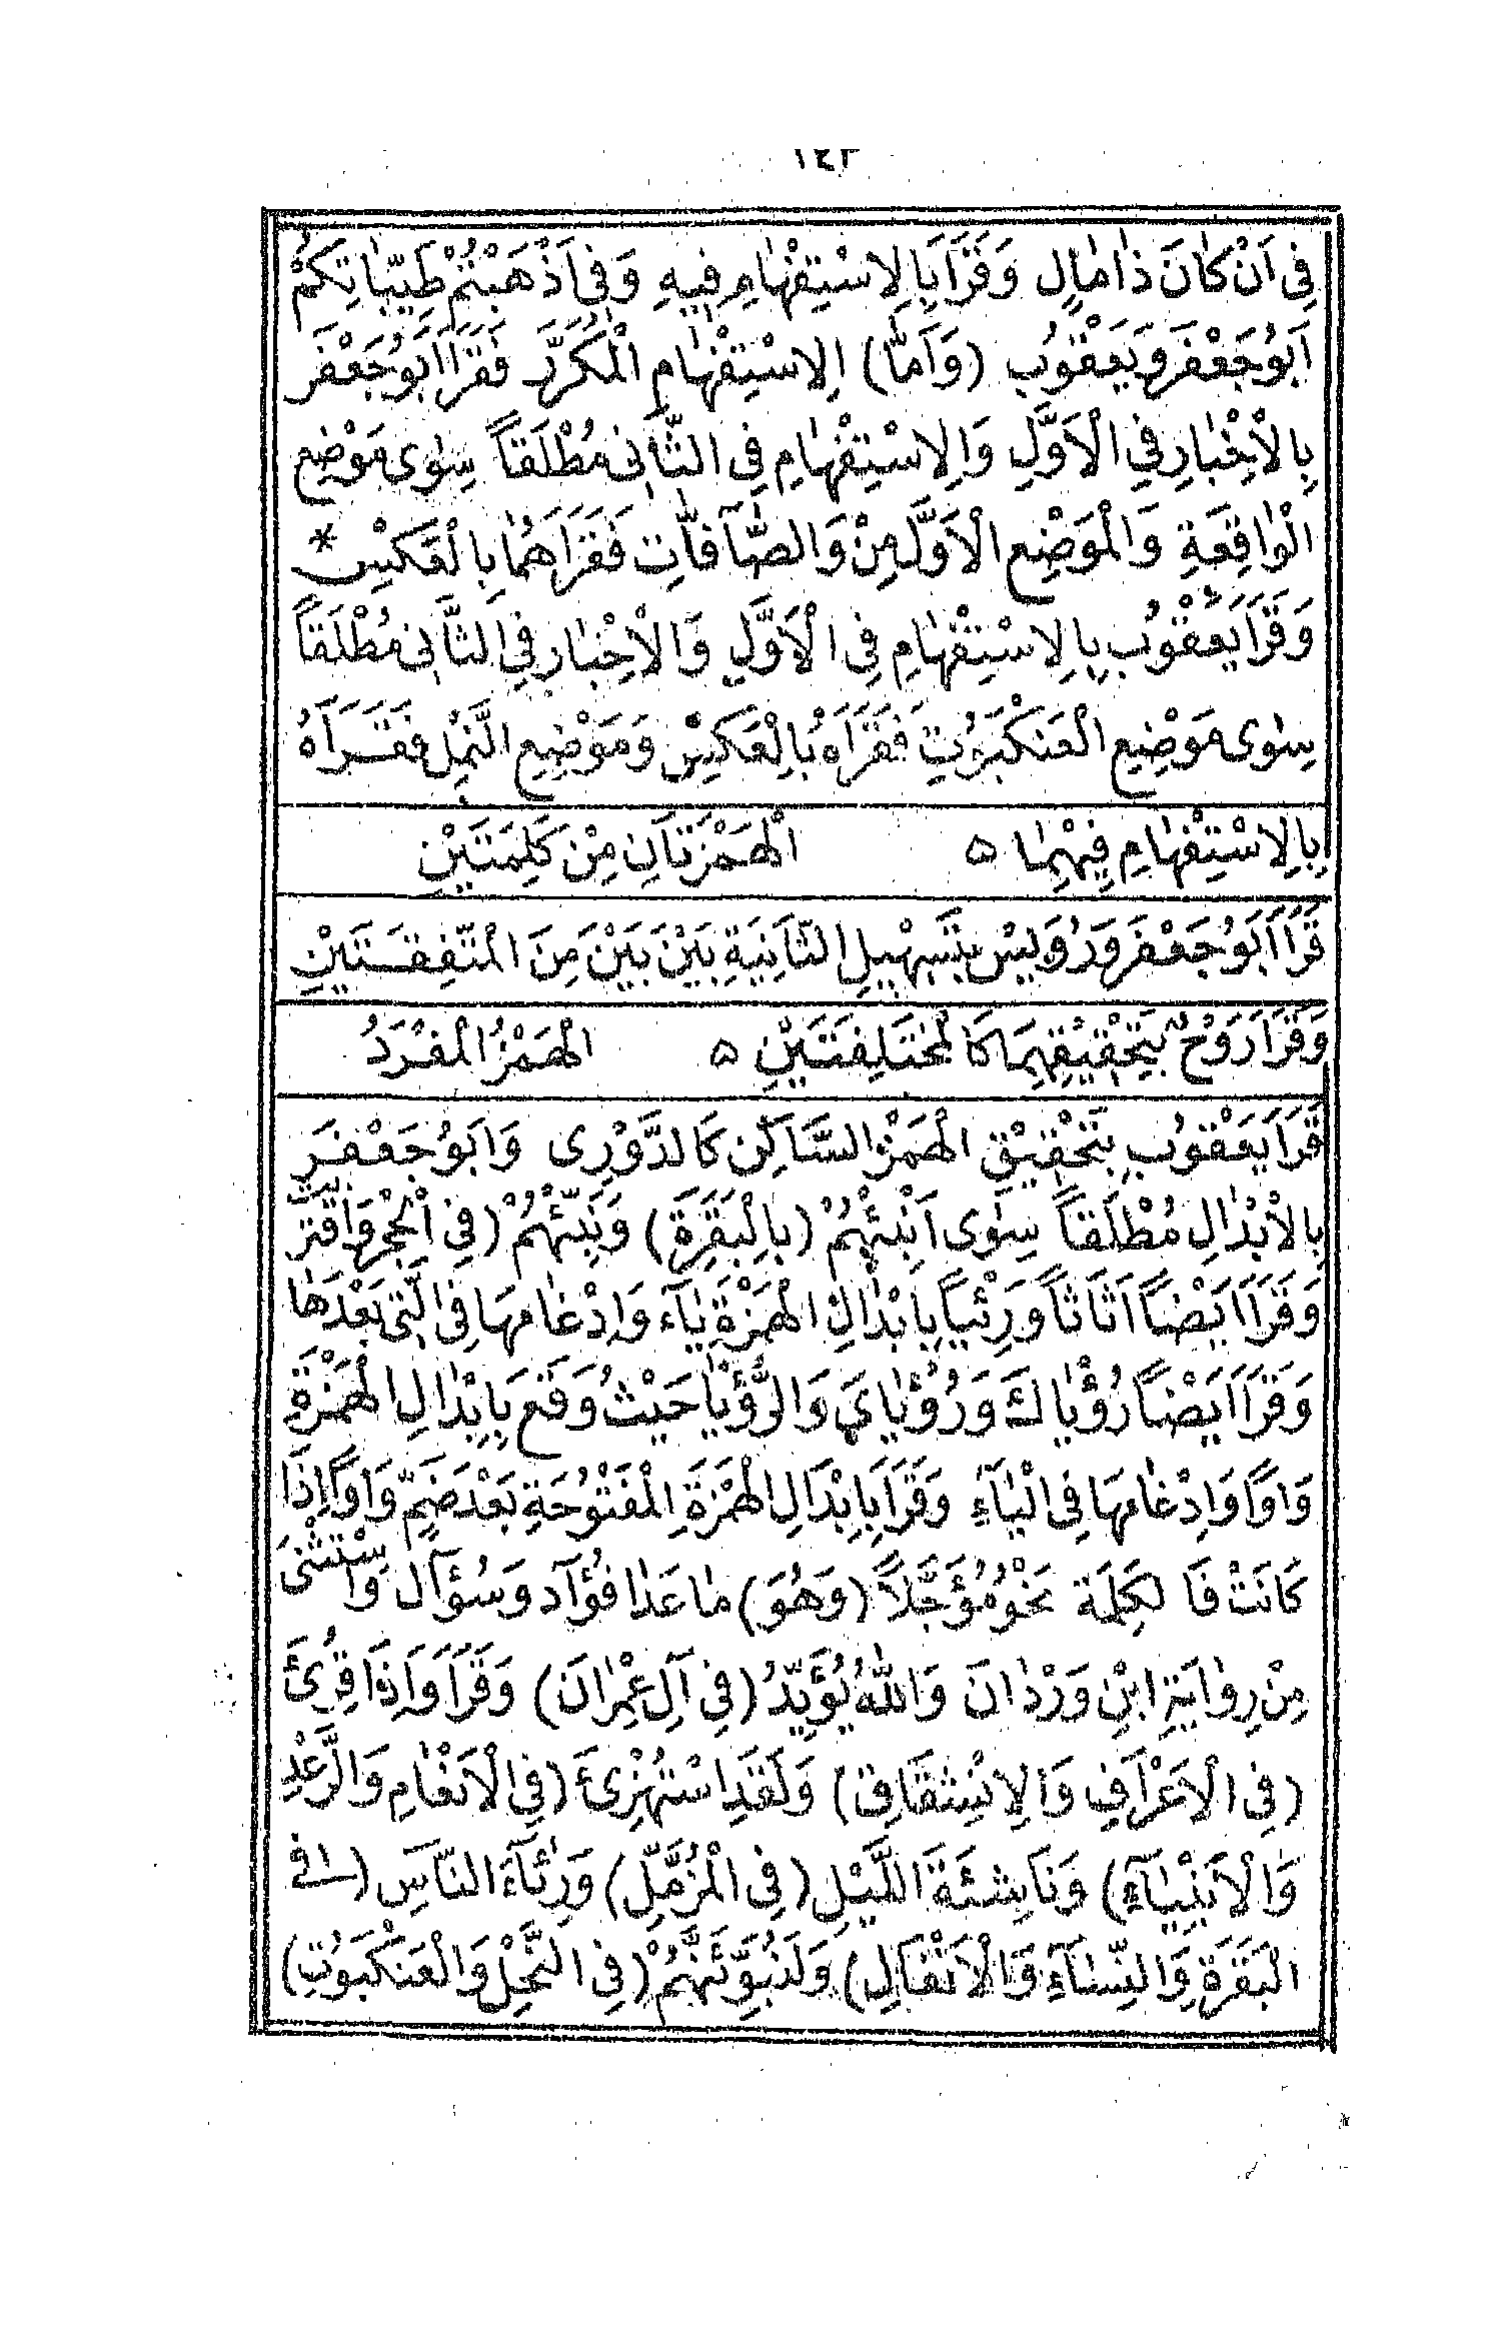 ١٤٣
فِي اَنْ كَانَ ذَا مَالٍ وَقَرَاَ بِالِاسْتِفْهَامِ فِيهِ وَفِي اَذْهَبْتُمْ طَيِّبَاتِكُمْ
اَبُو جَعْفَرَ وَيَعْقُوبُ (وَاَمَّا) الِاسْتِفْهَامِ الْمُكَرَّرِ فَقَرَاَ اَبُو جَعْفَرَ
بِالْاِخْبَارِ فِي الْاَوَّلِ وَالِاسْتِفْهَامِ فِي الثَّانِي مُطْلَقاً سِوٰى مَوْضِعِ
الْوَاقِعَةِ وَالْمَوْضِعِ الْاَوَّلِ مِنْ وَالصَّآفَّاتِ فَقَرَاَهُمَا بِالْعَكْسِ *
وَقَرَاَ يَعْقُوبُ بِالِاسْتِفْهَامِ فِي الْاَوَّلِ وَالْاِخْبَارِ فِي الثَّانِي مُطْلَقاً
سِوٰى مَوْضِعِ الْعَنْكَبُوتِ فَقَرَاَهُ بِالْعَكْسِ وَمَوْضِعِ النَّمْلِ فَقَرَاَهُ
بِالِاسْتِفْهَامِ فِيْهِمَا ه اَلْهَمْزَتَانِ مِنْ كَلِمَتَيْنِ
قَرَاَ اَبُو جَعْفَرَ وَرُوَيْسٌ بِتَسْهِيلِ الثَّانِيَةِ بَيْنَ بَيْنَ مِنَ الْمُتَّفِقَتَيْنِ
وَقَرَاَ رَوْحٌ بِتَحْقِيقِهِمَا كَالْمُخْتَلِفَتَيْنِ ه اَلْهَمْزُ الْمُفْرَدُ
قَرَاَ يَعْقُوبُ بِتَحْقِيْقِ الْهَمْزِ السَّاكِنِ كَالدُّوْرِى وَاَبُو جَعْفَرَ
بِالْاِبْدَالِ مُطْلَقاً سِوٰى اَنْبِئْهُمْ (بِالْبَقَرَةِ) وَنَبِّئْهُمْ (فِي الْحِجْرِ وَاقْتَرَبَتْ
وَقَرَاَ اَيْضاً اَثَاثاً وَرِئْياً بِاِبْدَالِ الْهَمْزَةِ يَاءً وَاِدْغَامِهَا فِي الَّتِى بَعْدَهَا
وَقَرَاَ اَيْضاً رُؤْيَاكَ وَرُؤْيَايَ وَالرُّؤْيَا حَيْثُ وَقَعَ بِاِبْدَالِ الْهَمْزَةِ
وَاوًا وَاِدْغَامِهَا فِي الْيَآءِ وَقَرَاَ بِاِبْدَالِ الْهَمْزَةِ الْمَفْتُوْحَةِ بَعْدَ ضَمٍّ وَاوًا اِذَا
كَانَتْ فَا لكَلِمَة نَحْوُ مُؤَجَّلاً (وَهُوَ) مَا عَدَا فُؤَآد وَسُؤَآل وَاسْتَثْنٰى
مِنْ رِوَايَةِ ابْنِ وَرْدَانَ وَاللّٰهُ يُؤَيِّدُ (فِي آلِ عِمْرَانَ) وَقَرَاَ وَاِذَا قُرِئَ
(فِي الْاَعْرَافِ وَالِانْشِقَاقِ) وَلَقَدِ اسْتُهْزِئَ (فِي الْاَنْعَامِ وَالرَّعْدِ
وَالْاَنْبِيَآءِ) وَنَاشِئَةَ اللَّيْلِ (فِي الْمُزَّمِّلِ) وَرِئَآءَ النَّاسِ (فى
الْبَقَرَةِ وَالنِّسَآءِ وَالْاَنْفَالِ) وَلَنُبَوِّئَنَّهُمْ (فِي النَّحْلِ وَالْعَنْكَبُوتِ)